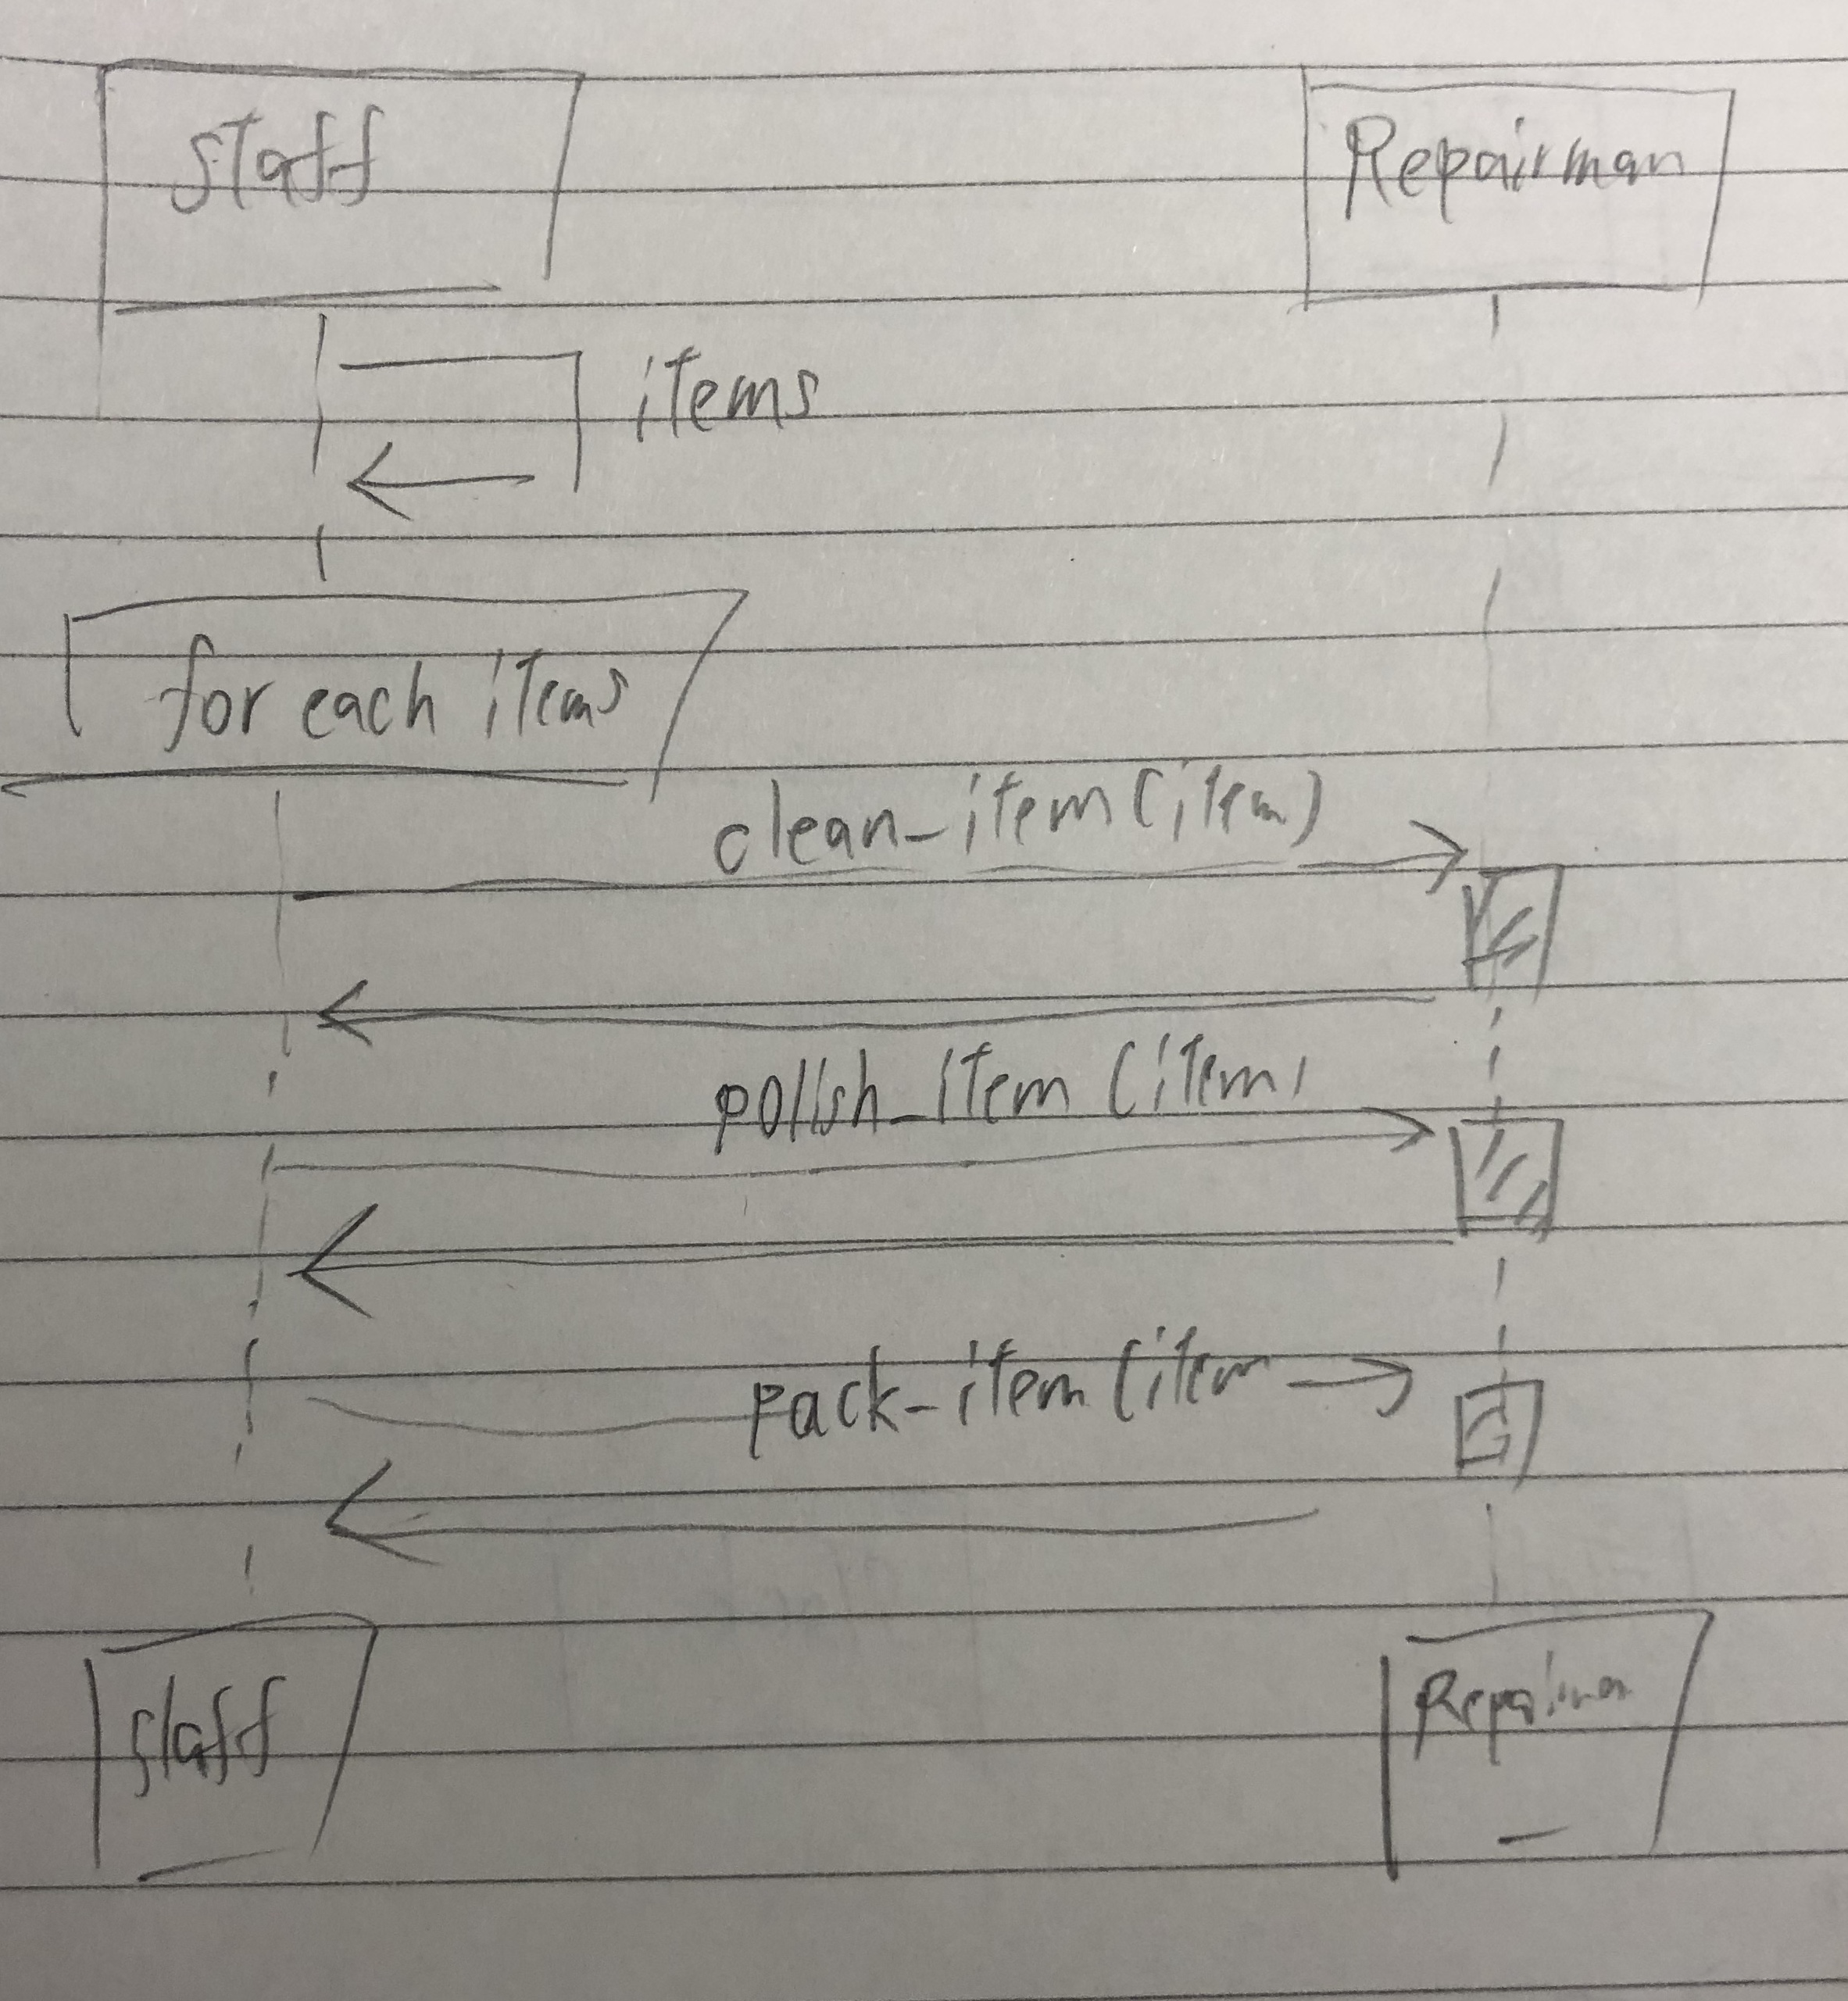 staff
Repairman
items
for each items
clean_item(item)
polish_item(item)
pack-item(item
staff